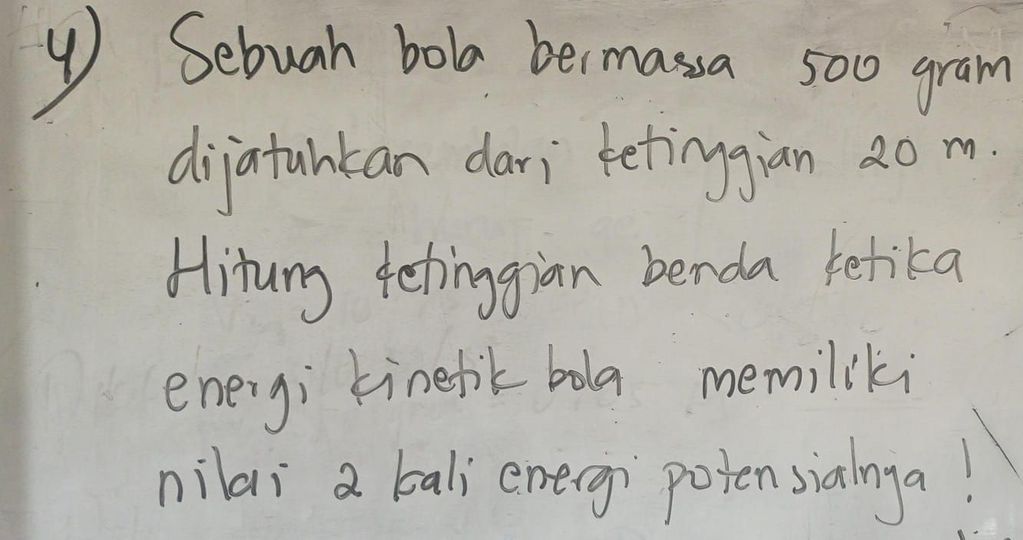 4) Sebuah bola bermassa 500 gram
dijatuhkan dari ketinggian 20 m.
Hitung ketinggian benda ketika
energi kinetik bola memiliki
nilai 2 kali energi potensialnya !